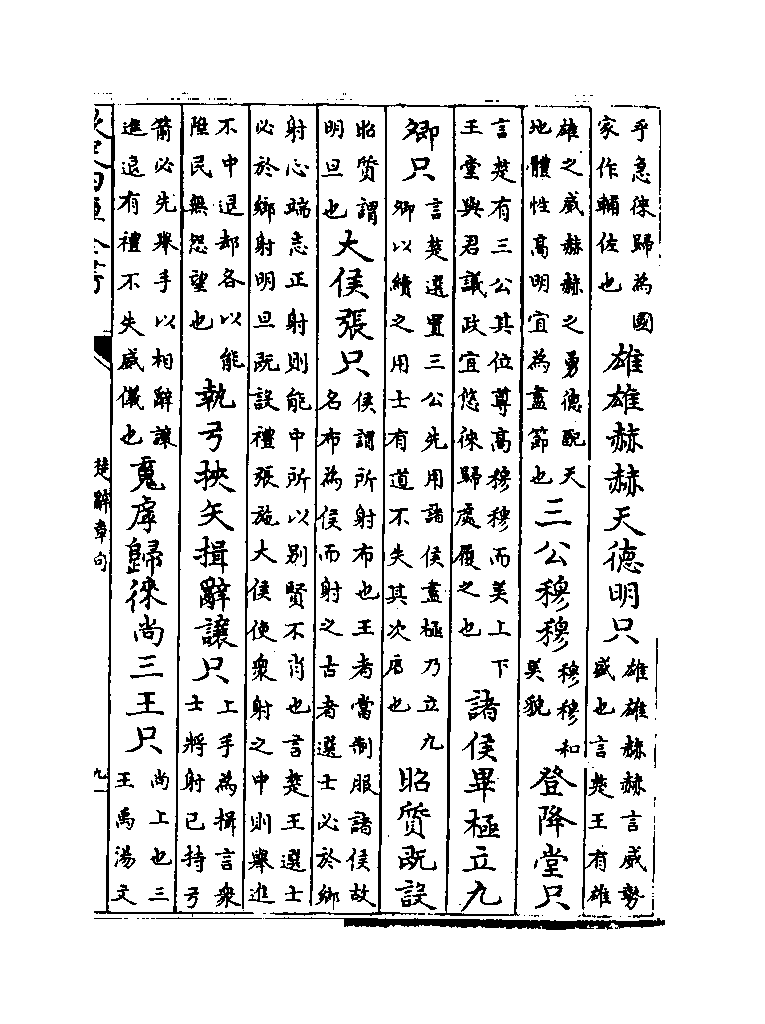 乎急徠歸為國家作輔佐也雄雄赫赫天德明只雄雄赫赫言威勢盛也言楚王有雄
雄之威赫赫之勇德配天地體性高明宜為盡節也三公穆穆穆穆和美貌登降堂只
言楚有三公其位尊高穆穆而美上下王堂與君議政宜悠徠歸處履之也諸侯畢極立九
卿只言楚選置三公先用諸侯盡極乃立九卿以續之用士有道不失其次序也昭質既設
昭質謂明旦也大侯張只侯謂所射布也王者當制服諸侯故名布為侯而射之古者選士必於鄉
射心端志正射則能中所以别賢不肖也言楚王選士必於鄉射明旦既設禮張施大侯使衆射之中則舉進
不中退却各以能陞民無怨望也執弓挾矢揖辭讓只上手為揖言衆士將射已持弓
箭必先舉手以相辭讓進退有禮不失威儀也䰟虖歸徠尚三王只尚上也三王禹湯文
楚辭章句